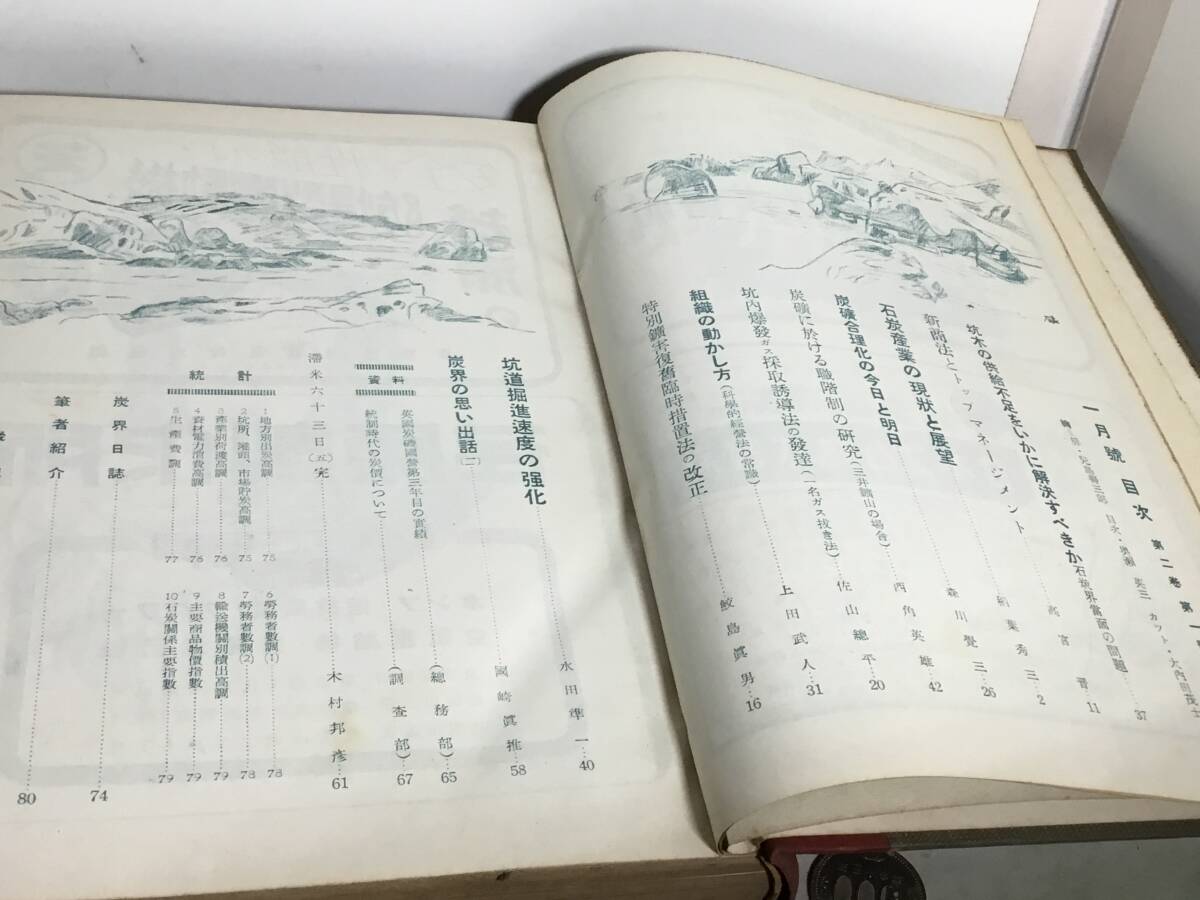 一月號 目次 第二卷 第一
目次・奥瀬 英三 カット・大内田茂士
坑木の供給不足をいかに解決すべきか 石炭界當面の問題 37
高宮 晋 11
新商法とトップマネージメント 秀三 2
石炭産業の現狀と展望 森川覺三 26
炭礦合理化の今日と明日 西角英雄 42
炭礦に於ける職階制の研究(三井鑛山の場合) 佐山總平 20
坑内爆發ガス採取誘導法の發達(一名ガス抜き法) 上田武人 31
組織の動かし方(科學的經營法の常識)
特別鑛害復舊臨時措置法の改正 鮫島眞男 16
坑道掘進速度の强化 水田準一 40
炭界の思い出話(二) 國崎眞推 58
資料
英國炭礦國營第三年目の實績 (總務部) 65
統制時代の炭價について (調査部) 67
滯米六十三日(五)完 木村邦彦 61
統計
1 地方別出炭高調 75
2 坑所、港頭、市場貯炭高調 75
3 產業別荷渡高調 76
4 資材電力消費高調 76
5 生產費調 77
6 勞務者數調(1) 78
7 勞務者數調(2) 78
8 輸送機關別積出高調 79
9 主要商品物價指數 79
10 石炭關係主要指數 79
炭界日誌 74
筆者紹介 80